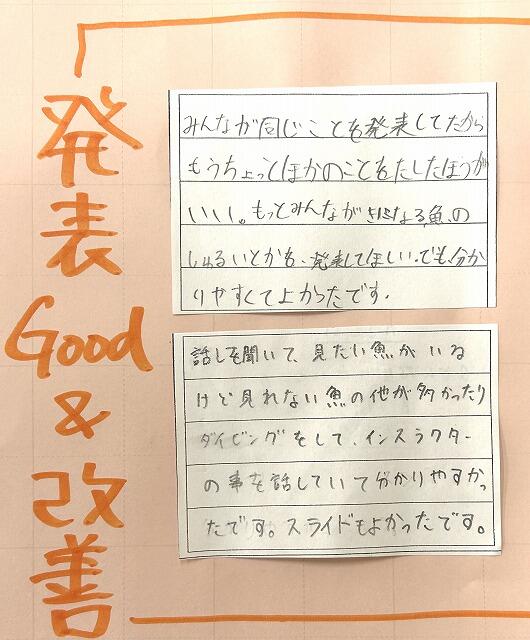 発表 Good & 改善
みんなが同じことを発表してたから
もうちょっとほかのことをたしたほうが
いい。もっとみんなが気になる魚の
しゅるいとかを、発表してほしい。でも、分か
りやすくてよかったです。
話しを聞いて、見たい魚がいる
けど見れない魚の他が多かったり
ダイビングをして、インスラクター
の事を話していて分かりやすかっ
たです。スライドもよかったです。